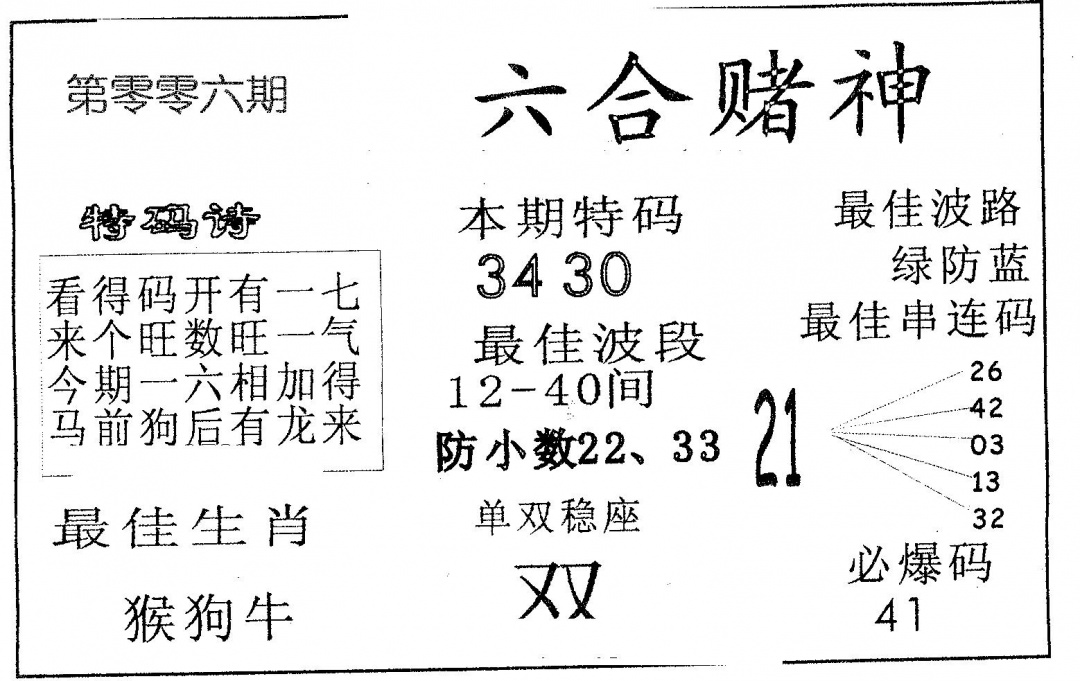 第零零六期
六合赌神
特码诗
看得码开有一七
来个旺数旺一气
今期一六相加得
马前狗后有龙来
最佳生肖
猴狗牛
本期特码
34 30
最佳波段
12-40间
防小数22、33
单双稳座
双
最佳波路
绿防蓝
最佳串连码
21
26
42
03
13
32
必爆码
41